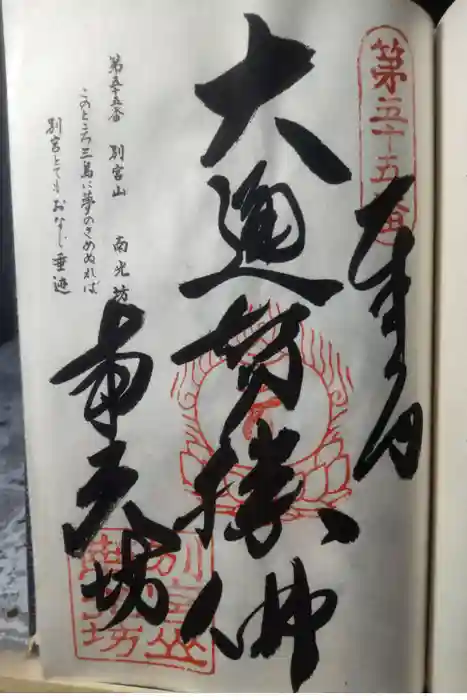 第五十五番
奉納
大通智勝佛
南光坊
別宮山
南光坊
第五十五番 別宮山 南光坊
このところ三島に夢のさめぬれば
別宮とてもおなじ垂迹